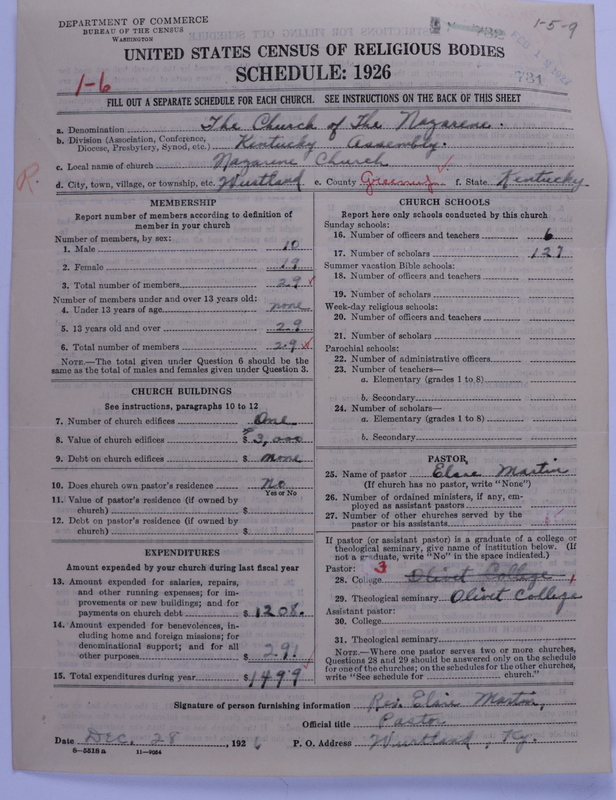 DEPARTMENT OF COMMERCE
BUREAU OF THE CENSUS
WASHINGTON
1-5-9
731
UNITED STATES CENSUS OF RELIGIOUS BODIES
SCHEDULE: 1926
1-6
FILL OUT A SEPARATE SCHEDULE FOR EACH CHURCH. SEE INSTRUCTIONS ON THE BACK OF THIS SHEET
a. Denomination The Church of The Nazarene.
b. Division (Association, Conference, Diocese, Presbytery, Synod, etc.) Kentucky Assembly.
c. Local name of church Nazarene Church
R.
d. City, town, village, or township, etc. Wurtland e. County Greenup f. State Kentucky
MEMBERSHIP
Report number of members according to definition of
member in your church
Number of members, by sex:
1. Male 10
2. Female 19
3. Total number of members 29
Number of members under and over 13 years old:
4. Under 13 years of age none
5. 13 years old and over 29
6. Total number of members 29
NOTE.—The total given under Question 6 should be
same as the total of males and females given under Question 3.
CHURCH BUILDINGS
See instructions, paragraphs 10 to 12
7. Number of church edifices One
8. Value of church edifices $ 3,000
9. Debt on church edifices $ none
10. Does church own pastor's residence No
Yes or No
11. Value of pastor's residence (if owned by
church) $
12. Debt on pastor's residence (if owned by
church) $
EXPENDITURES
Amount expended by your church during last fiscal year
13. Amount expended for salaries, repairs,
and other running expenses; for im-
provements or new buildings; and for
payments on church debt $ 1208.
14. Amount expended for benevolences, in-
cluding home and foreign missions; for
denominational support; and for all
other purposes 291
15. Total expenditures during year $ 1499
CHURCH SCHOOLS
Report here only schools conducted by this church
Sunday schools:
16. Number of officers and teachers 6
17. Number of scholars 127
Summer vacation Bible schools:
18. Number of officers and teachers
19. Number of scholars
Week-day religious schools:
20. Number of officers and teachers
21. Number of scholars
Parochial schools:
22. Number of administrative officers
23. Number of teachers—
a. Elementary (grades 1 to 8)
b. Secondary
24. Number of scholars—
a. Elementary (grades 1 to 8)
b. Secondary
PASTOR
25. Name of pastor Elsie Martin
(If church has no pastor, write "None")
26. Number of ordained ministers, if any, em-
ployed as assistant pastors
27. Number of other churches served by the
pastor or his assistants
If pastor (or assistant pastor) is a graduate of a college or
theological seminary, give name of institution below. (If
not a graduate, write "No" in the space indicated.)
Pastor: 3
28. College Olivet College
29. Theological seminary Olivet College
Assistant pastor:
30. College
31. Theological seminary
NOTE.—Where one pastor serves two or more churches,
Questions 28 and 29 should be answered only on the schedule
for one of the churches; on the schedules for the other churches,
write "See schedule for ________ church."
Signature of person furnishing information Rev. Elsie Martin,
Official title Pastor
Date Dec. 28, 1926 P. O. Address Wurtland, Ky.
8-5518 a 11-9054